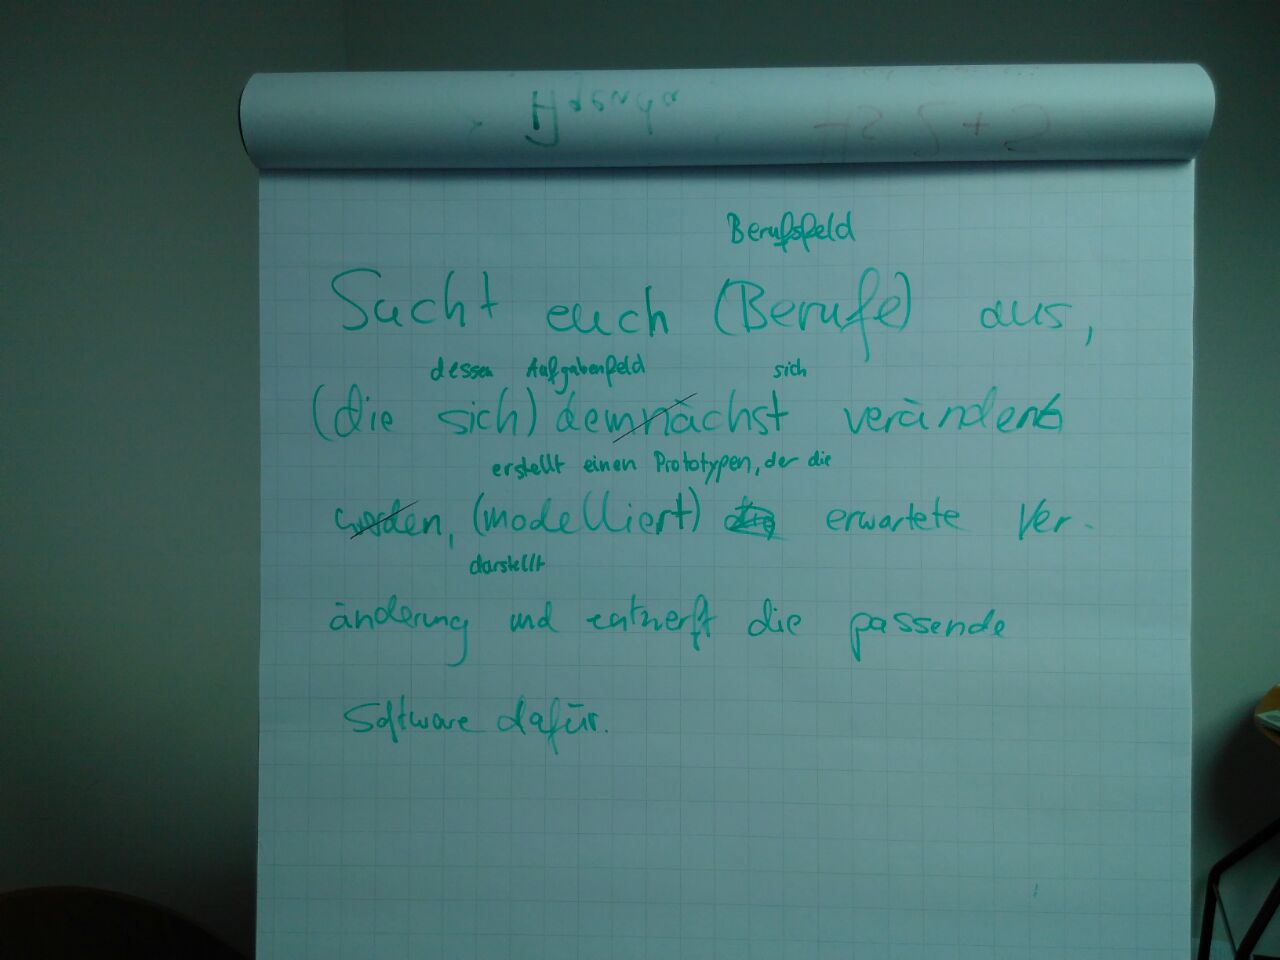 Agenda
Berufsfeld
Sucht euch (Berufe) aus,
dessen Aufgabenfeld sich
(die sich) demnächst verändert
erstellt einen Prototypen, der die
werden, (modelliert) die erwartete Ver-
darstellt
änderung und entwerft die passende
Software dafür.